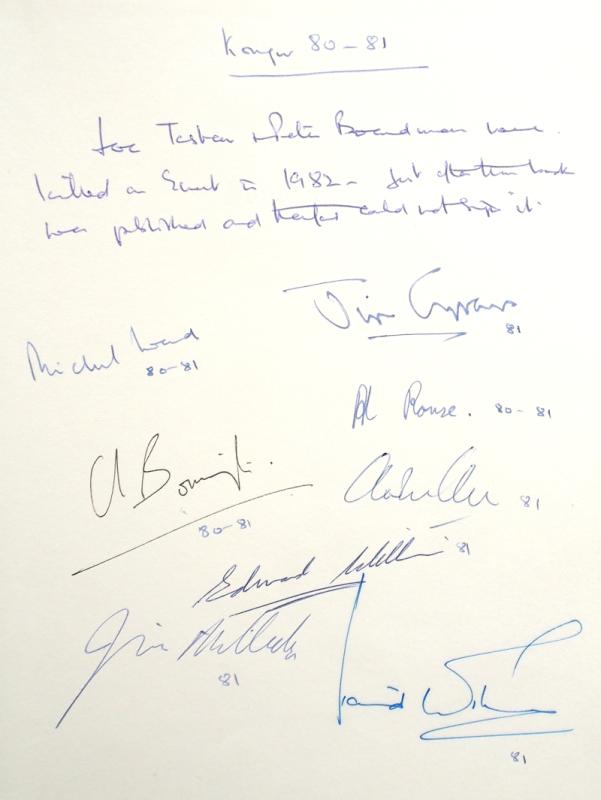 Kongur 80-81
Joe Tasker & Pete Boardman were
killed on Everest in 1982 - just after their book
was published and therefore could not sign it.
Jim Curran
81
Michael Ward
80-81
Al Rouse. 80-81
C Bonington.
80-81
81
Edward Williams 81
Jim Milledge
81
David Wilson
81